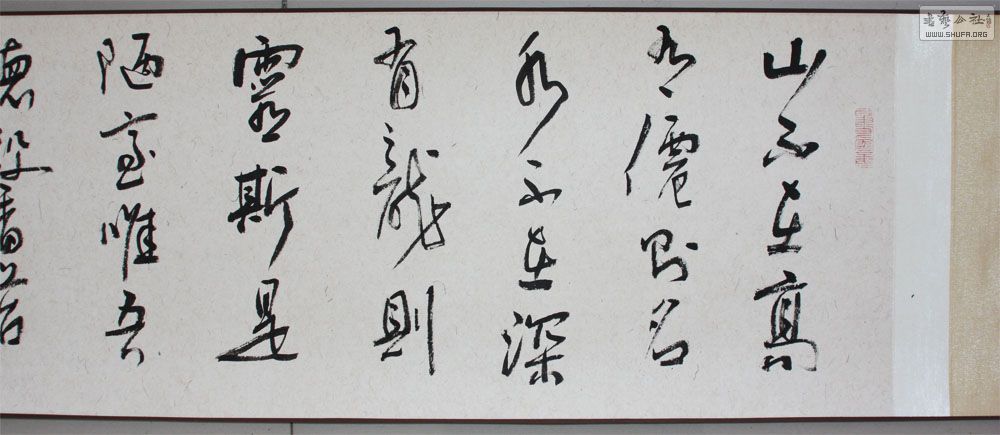 山不在高
有僊則名
水不在深
有龍則
靈斯是
陋室唯吾
惪馨苔
書藝公社
WWW.SHUFA.ORG